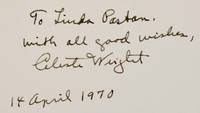 To Linda Pastan.
with all good wishes,
Celeste Wright
14 April 1970